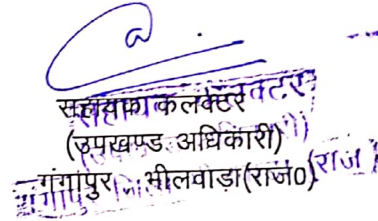 सहायक कलक्टर
(उपखण्ड अधिकारी)
गंगापुर भीलवाड़ा(राज0)